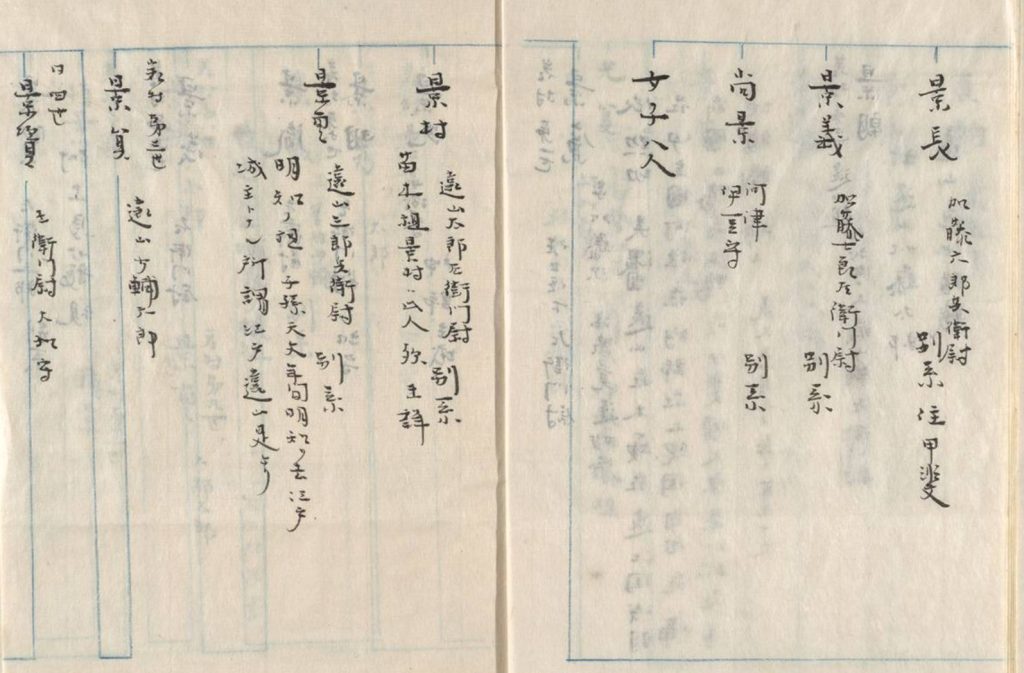 景長
加藤六郎兵衛尉
別系 住甲斐
景義
加藤七郎左衛門尉
別系
尚景
河津
伊豆守
別系
女子八人
景村
遠山太郎左衛門尉
別系
苗木祖景村
景重
遠山三郎兵衛尉
別系
明知ノ祖 子孫天文年間明知ヲ去江戸
城主トナル所謂江戸遠山是也
景村第三世
景員
遠山 大輔 郎
同四世
景資
左衛門尉 大和守